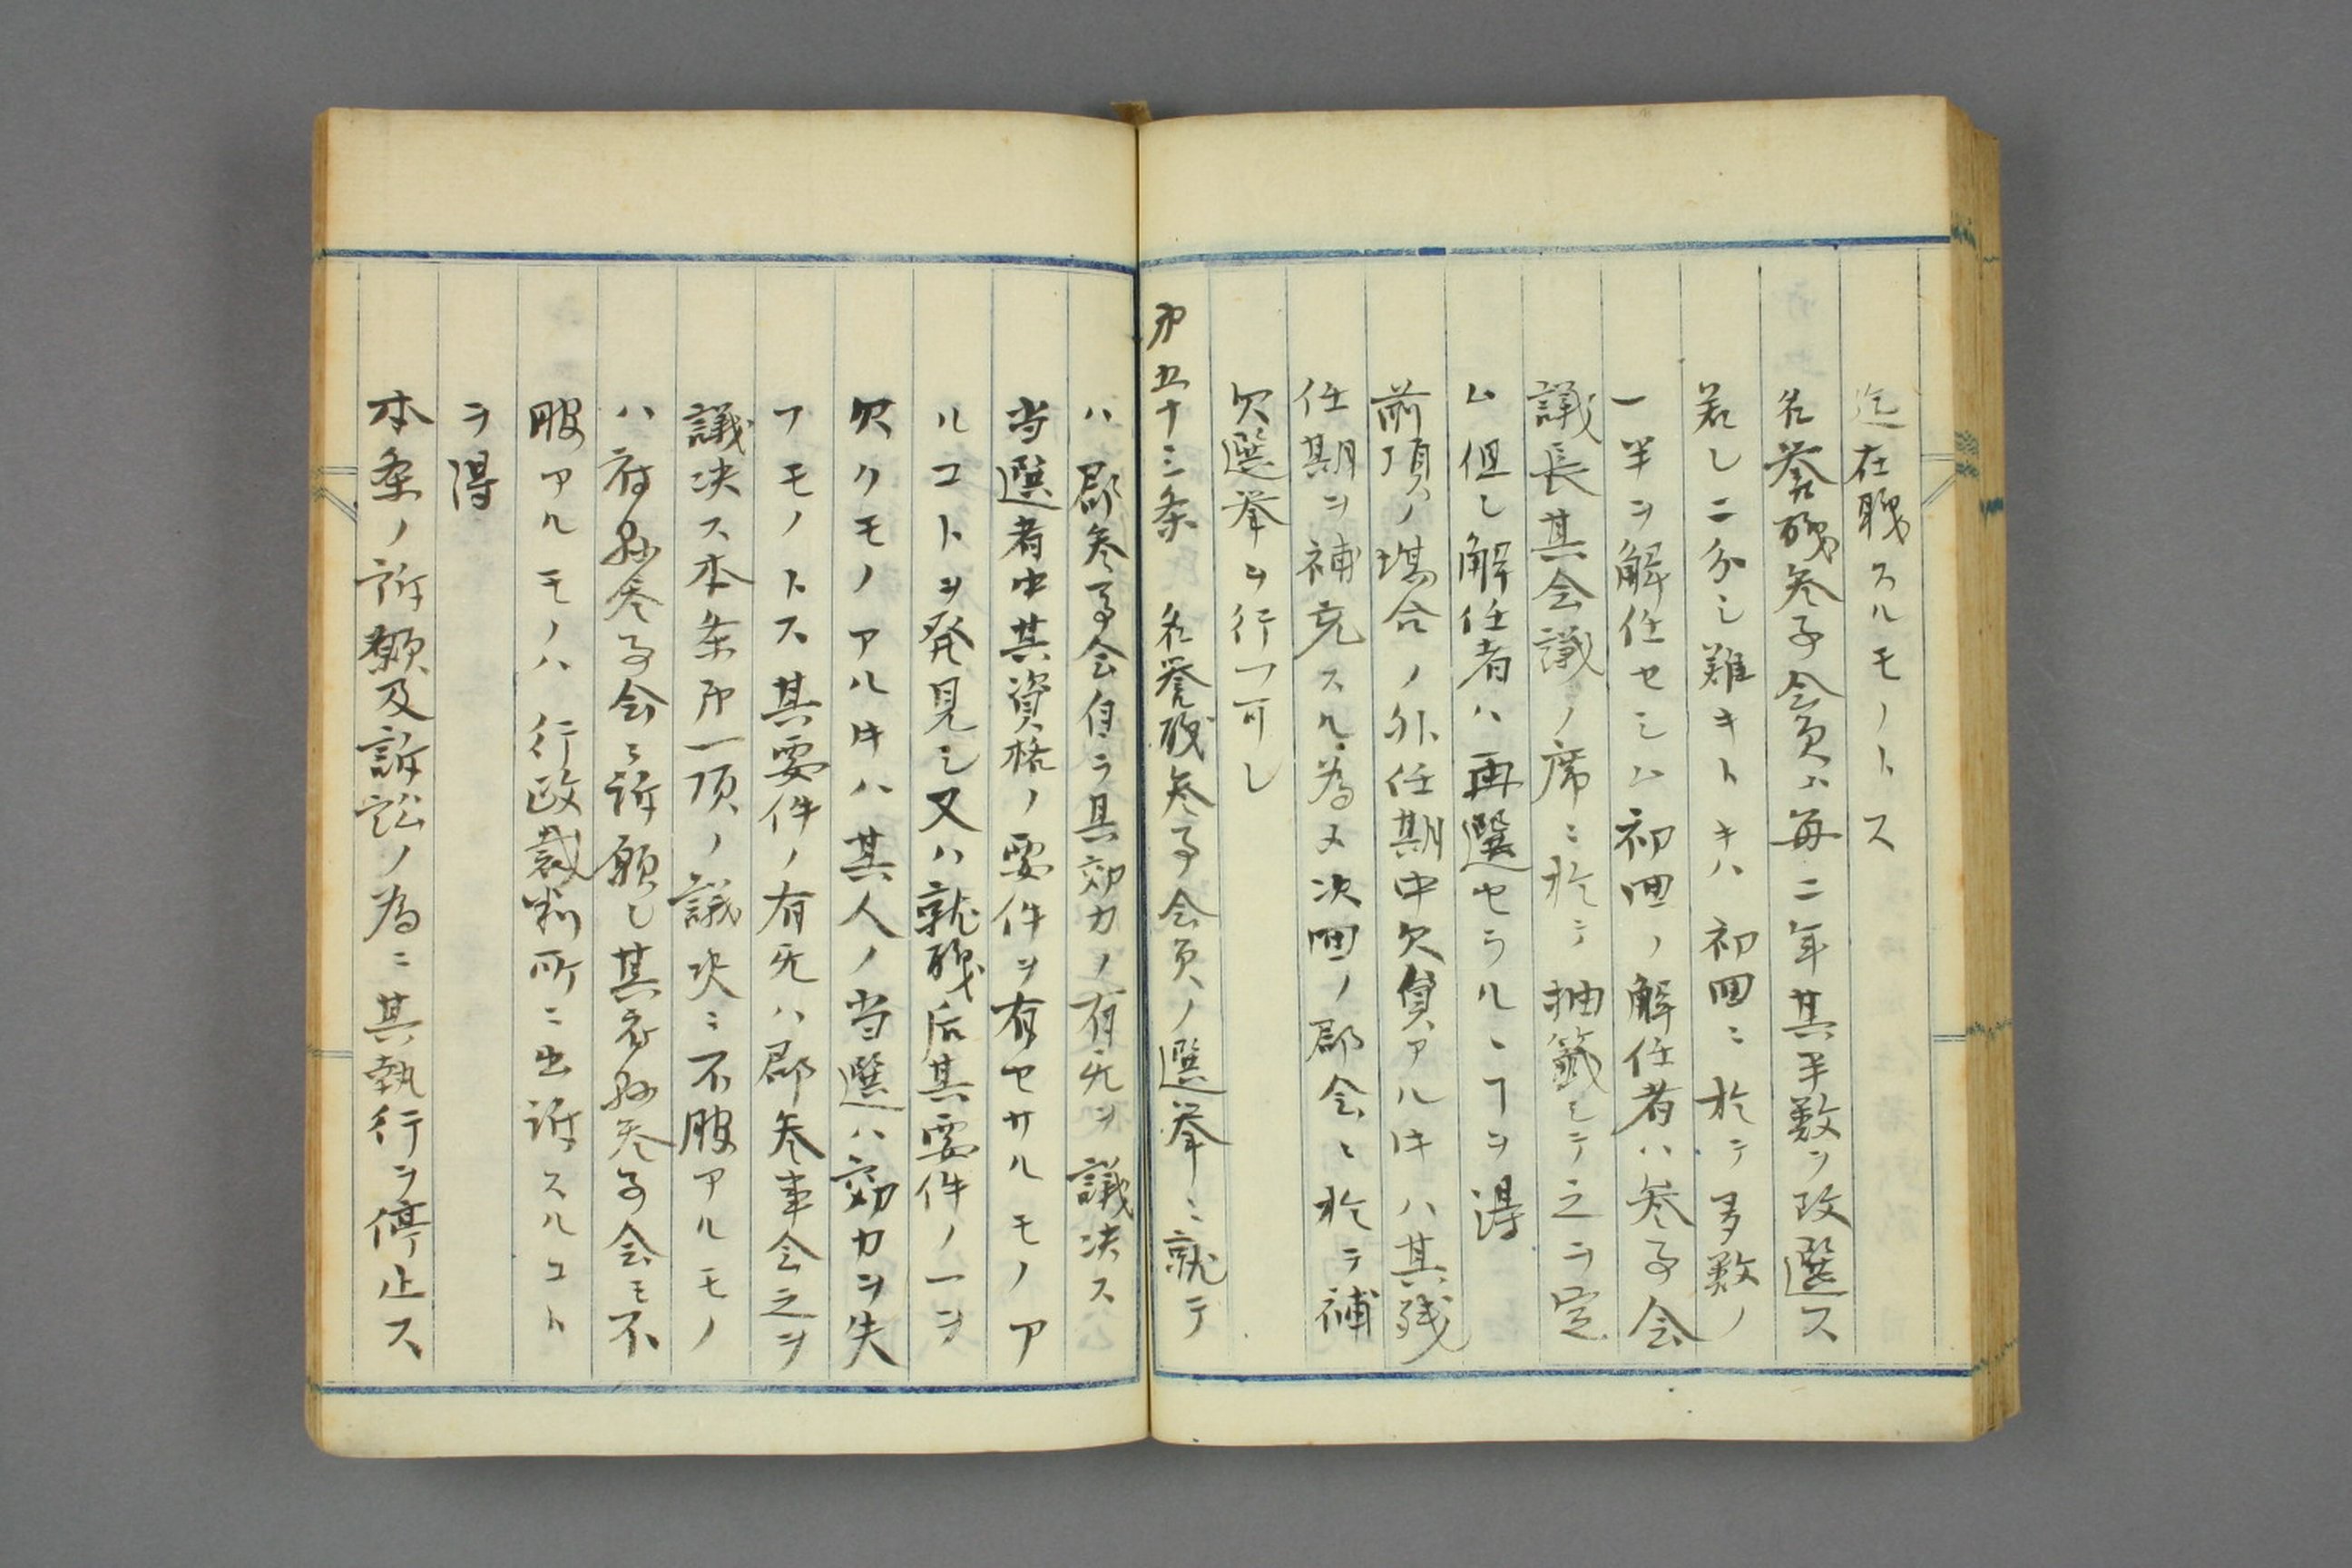 迄在職スルモノトス
名誉職参事会員ハ毎二年其半数ヲ改選ス
若シ二分シ難キトキハ初回ニ於テ多数ノ
一半ヲ解任セシム初回ノ解任者ハ参事会
議長其会議ノ席ニ於テ抽籤シテ之ヲ定
ム但シ解任者ハ再選セラルヽヿヲ得
前項ノ場合ノ外任期中欠員アルキハ其残
任期ヲ補充スル為メ次回ノ郡会ニ於テ補
欠選挙ヲ行フ可シ
第五十三条 名誉職参事会員ノ選挙ニ就テ
ハ郡参事会自ラ其効力ノ有无ヲ議決ス
当選者中其資格ノ要件ヲ有セサルモノア
ルコトヲ発見シ又ハ就職后其要件ノ一ヲ
欠クモノアルキハ其人ノ当選ハ効力ヲ失
フモノトス其要件ノ有无ハ郡参事会之ヲ
議決ス本条第一項ノ議决ニ不服アルモノ
ハ府県参事会ニ訴願シ其府県参事会ニ不
服アルモノハ行政裁判所ニ出訴スルコト
ヲ得
本条ノ訴願及訴訟ノ為ニ其執行ヲ停止ス